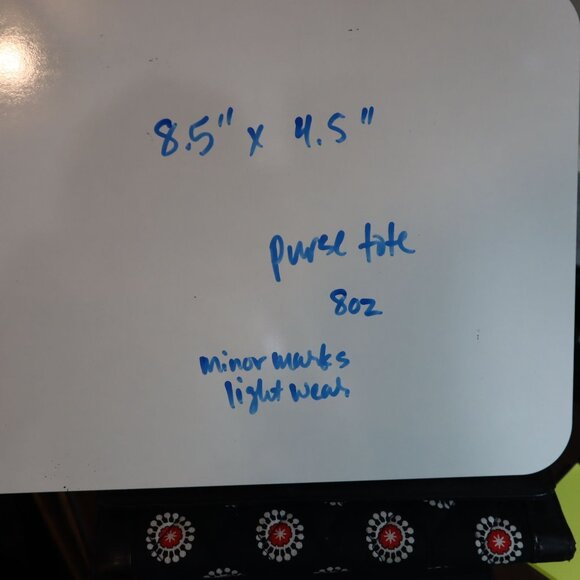 8.5" x 4.5"
purse tote
8oz
minor marks
light wear